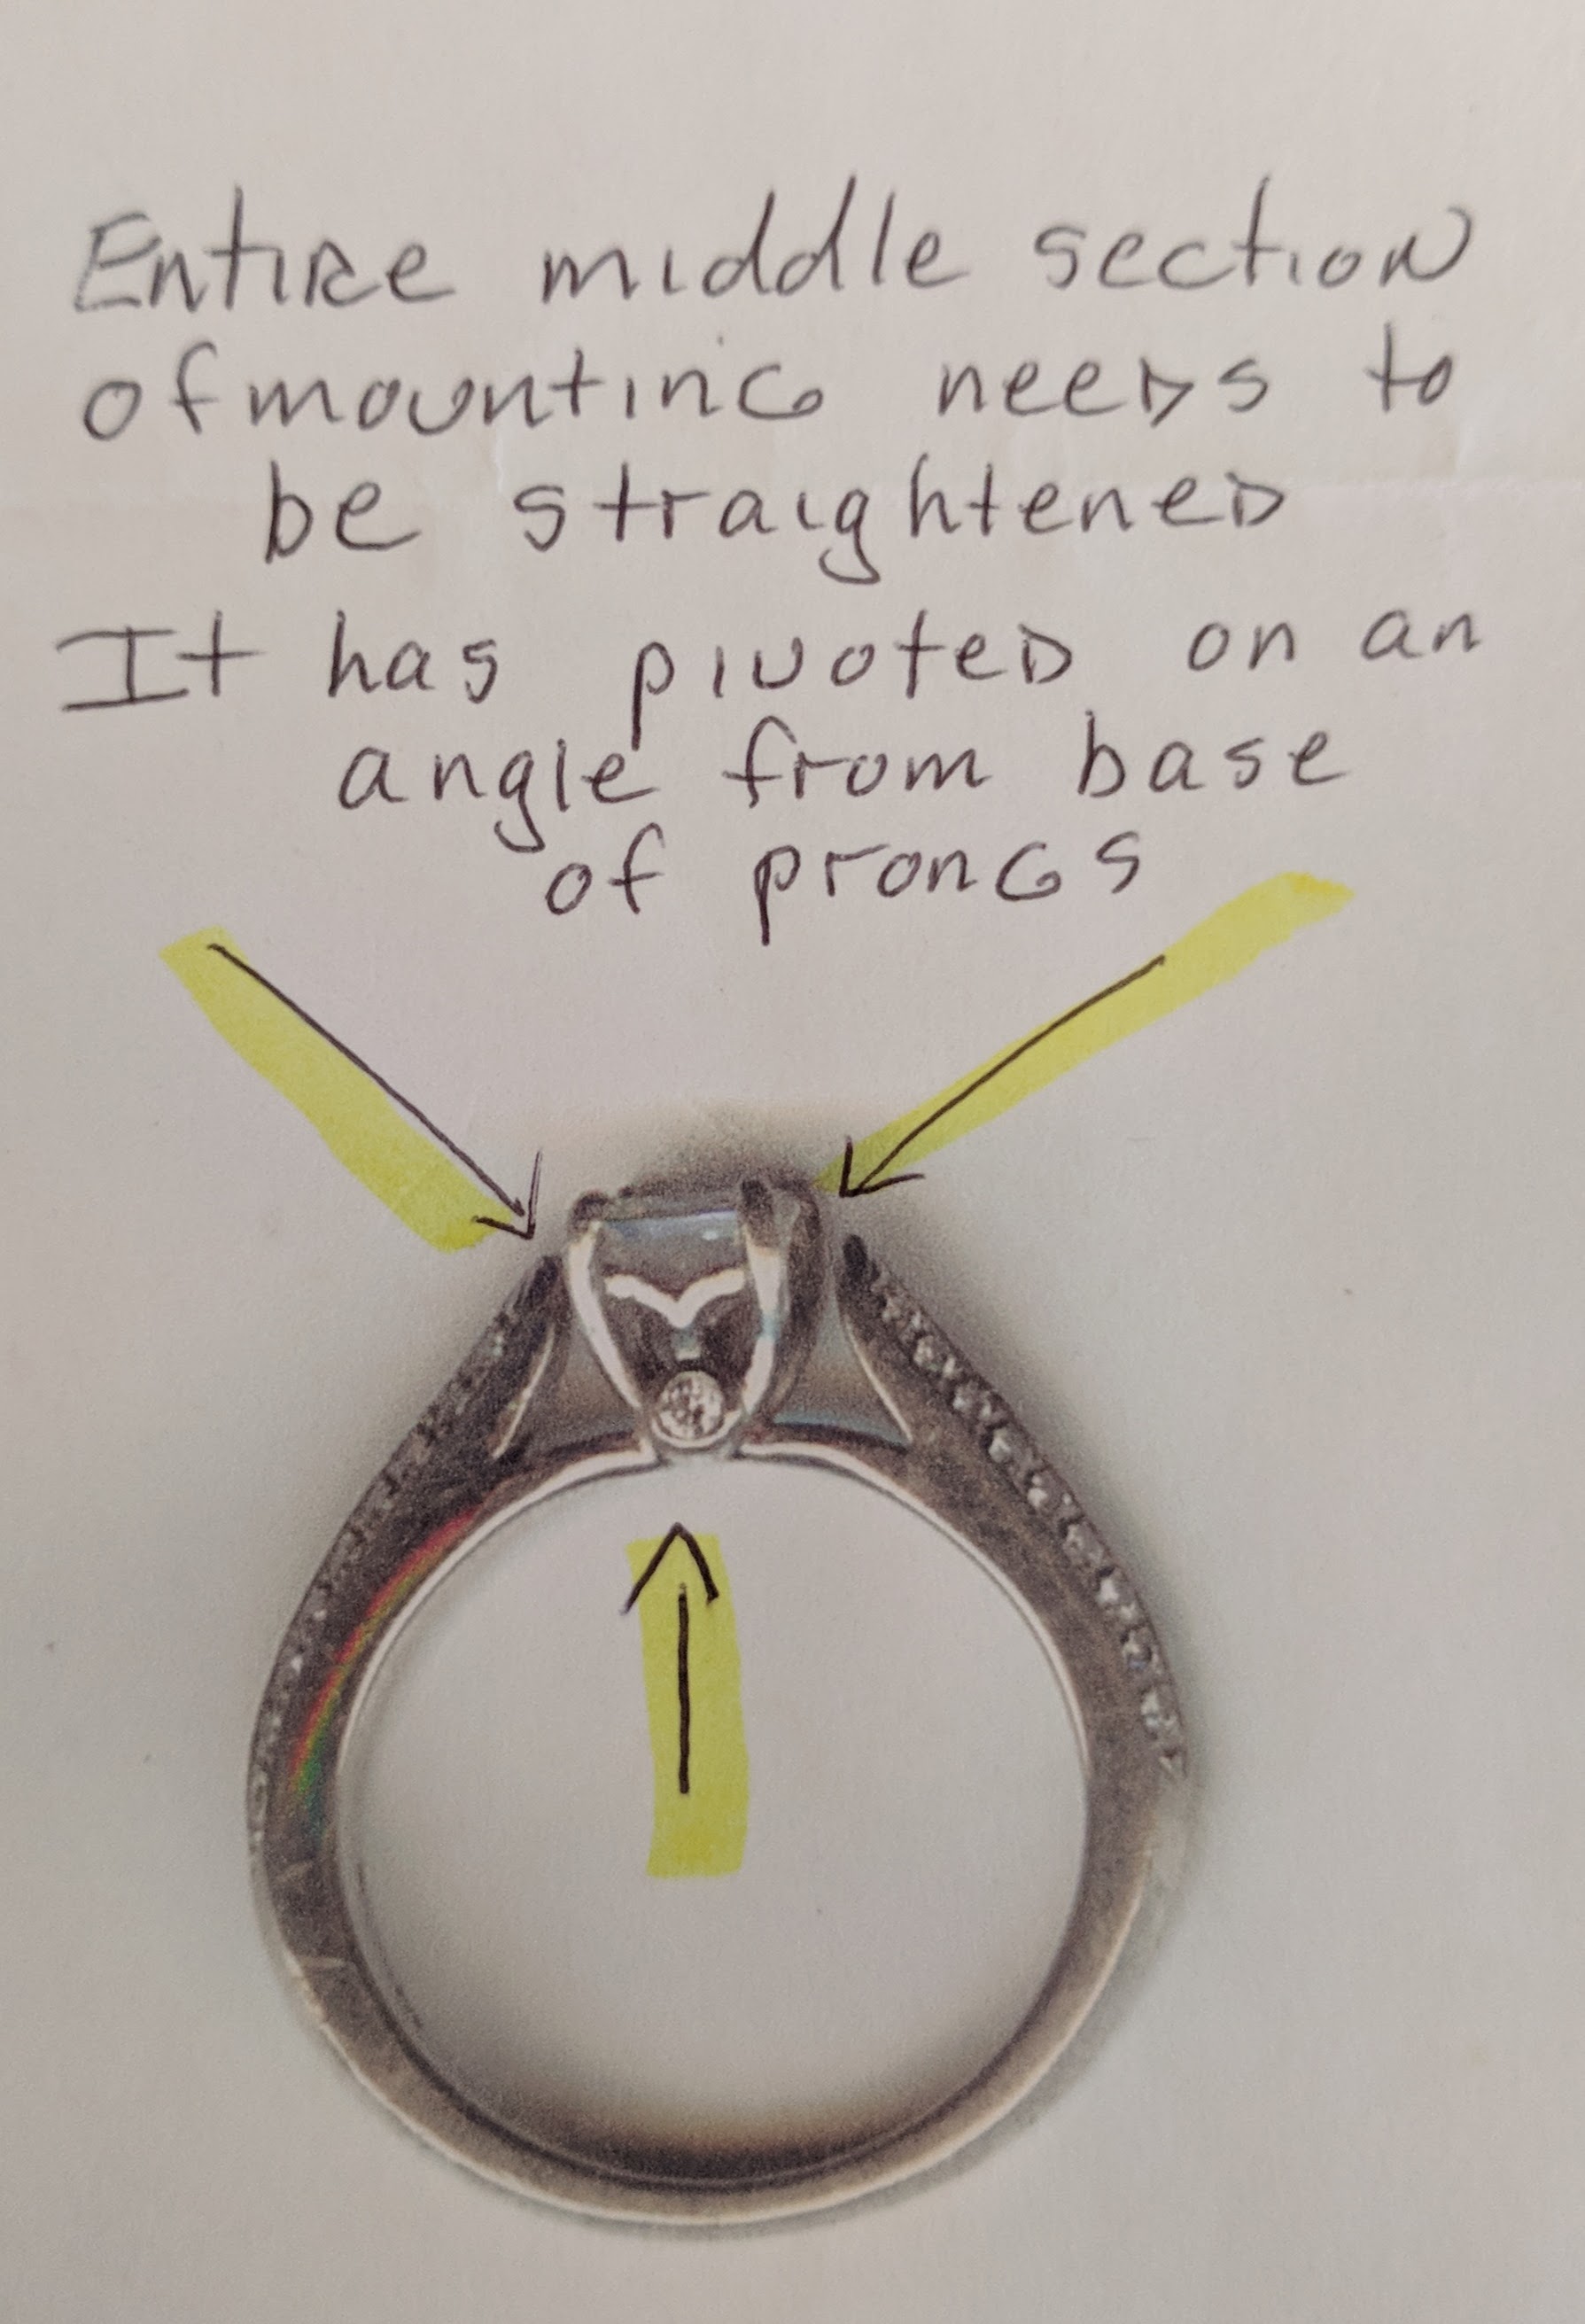 Entire middle section
of mounting needs to
be straightened
It has pivoted on an
angle from base
of prongs